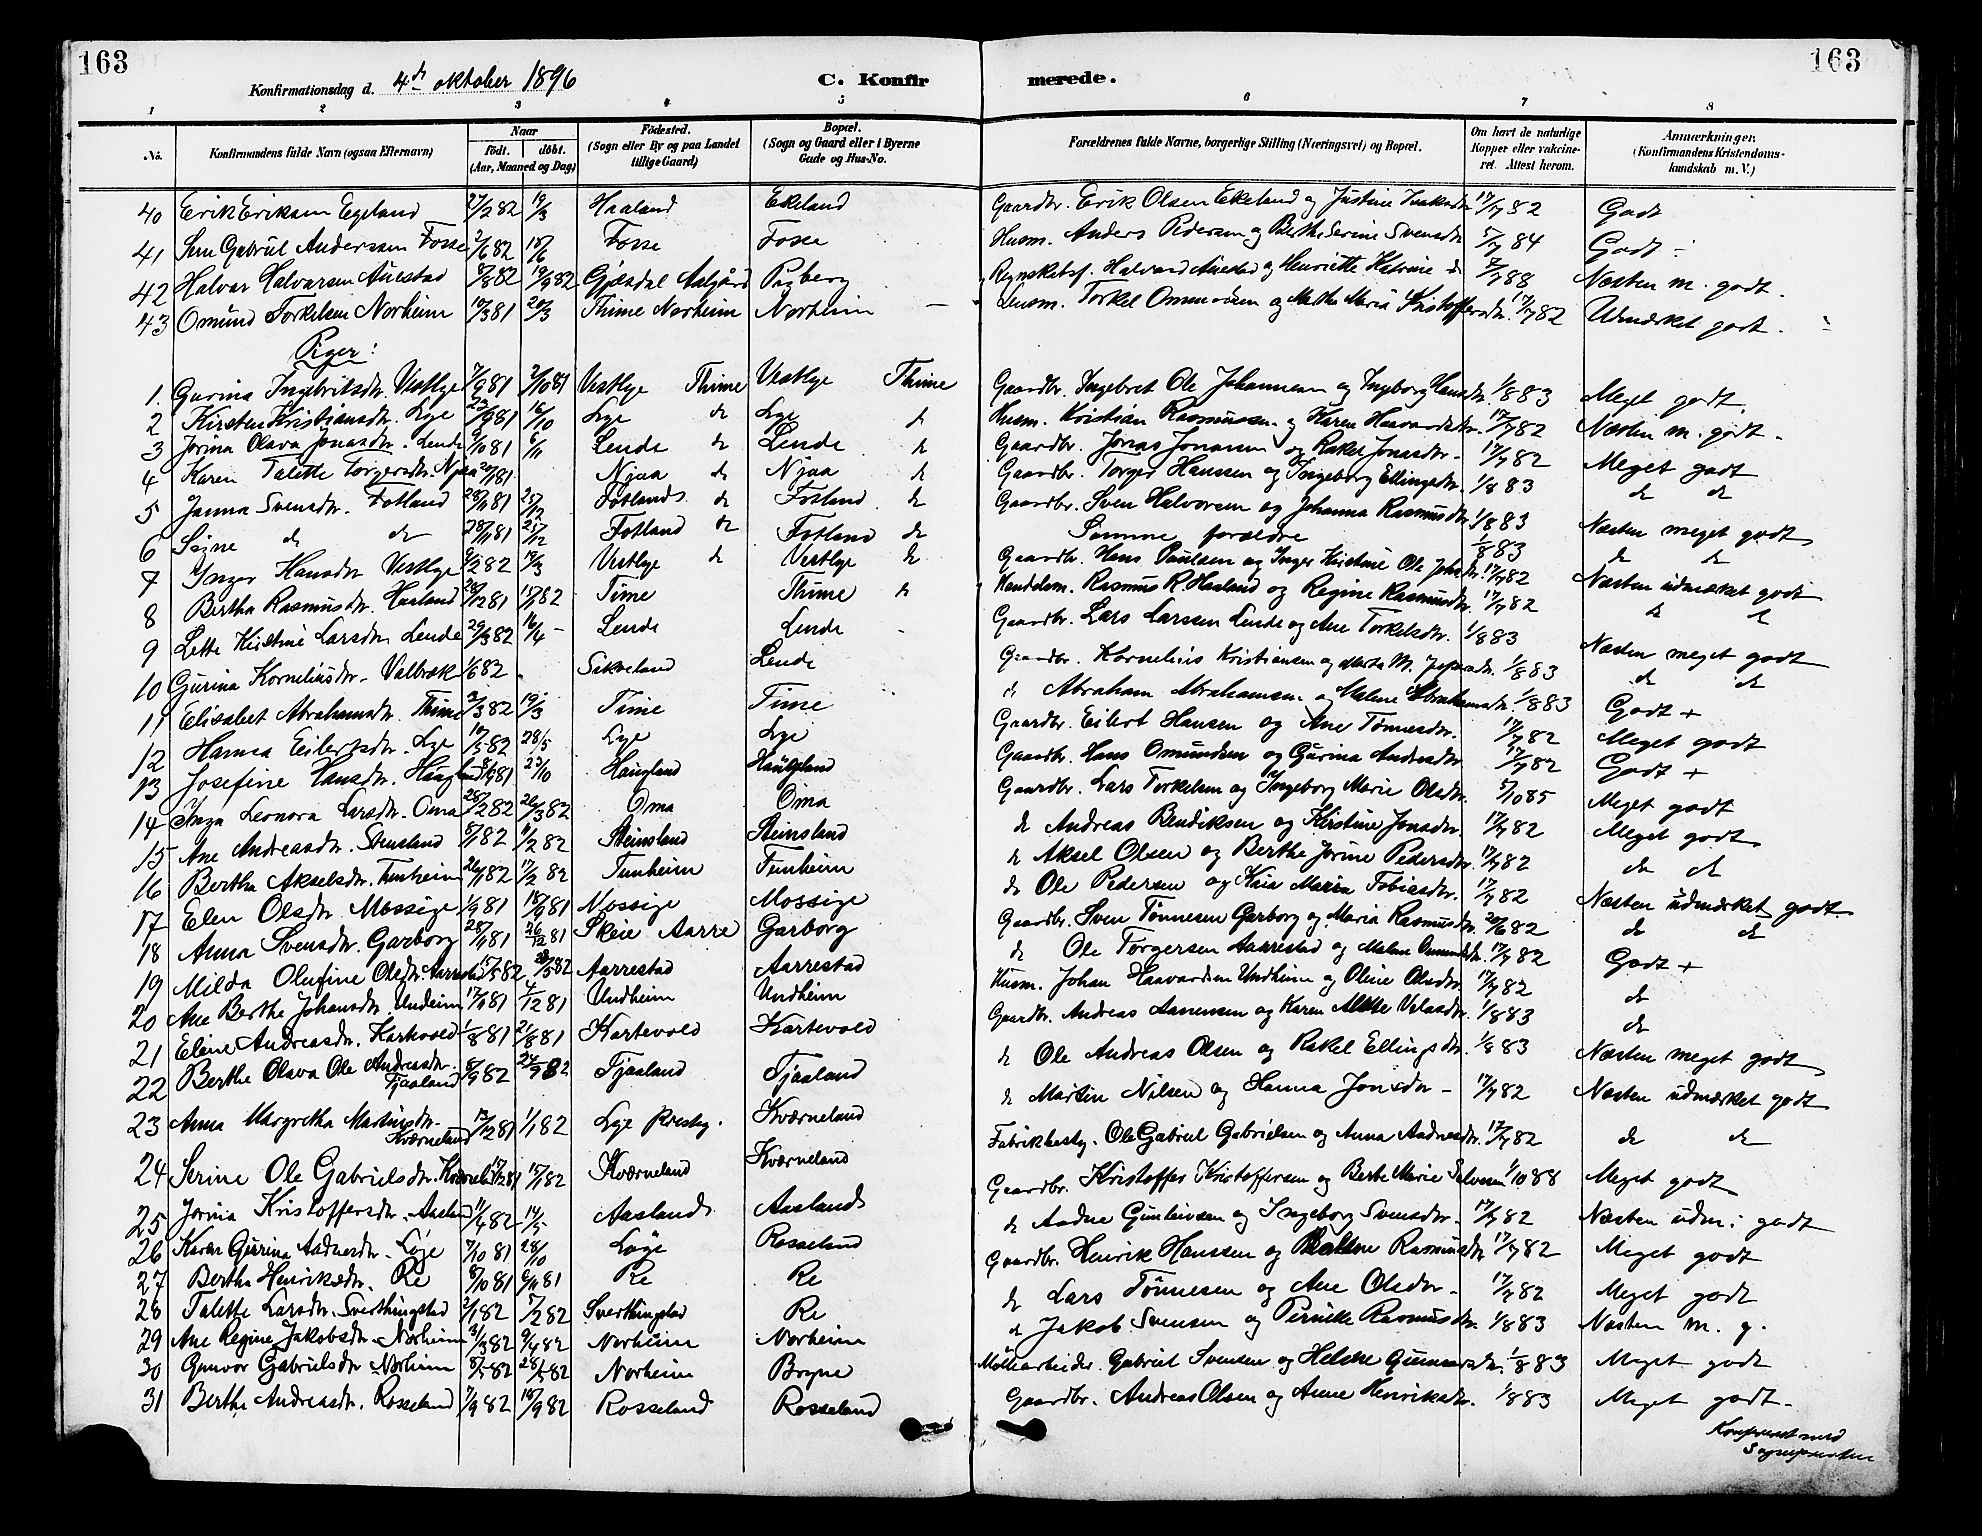 163
163
Konfirmationsdag d. 4de oktober 1896
C. Konfir merede.
1 2 3 4 5 6 7 8
No. Konfirmandens fulde Navn (ogsaa Efternavn) Naar födt. döbt. (Aar, Maaned og Dag) Födested. (Sogn eller By og paa Landet tillige Gaard) Bopæl. (Sogn og Gaard eller i Byerne Gade og Hus-No. Forældrenes fulde Navne, borgerlige Stilling (Næringsvei) og Bopæl. Om havt de naturlige Kopper eller vakcineret. Attest herom. Anmærkninger. (Konfirmandens Kristendomskundskab m. V.)
40 Erik Eriksen Egeland 27/2 82 19/3 Haaland Ekeland Gaardbr. Erik Olsen Ekeland og Justine Isaksdtr 17/7 82 Godt
41 Gabriel Anderssen Fosse 2/6 82 18/6 Fosse Fosse Husm. Anders Pedersen og Berthe Serine Svensdtr 5/7 84 Godt
42 Halvar Halvarsen Auestad 8/8 82 19/9 82 Gjesdal Aalgård Rygberg Regnskabsf. Halvard Auestad og Henriette Katrine 7/7 88 Næsten m. godt.
43 Omund Torkelsen Norheim 10/3 81 20/3 Thime Norheim Norheim Lensm. Torkel Ommundsen og Malthe Maria Kristoffersdtr. 17/7 82 Udmærket godt.
Piger:
1. Gurina Ingebriktsdtr. Vestlye 7/9 81 2/10 81 Vestlye Thime Vestlye Thime Gaardbr. Ingebret Ole Johannesen og Ingborg Hansdtr. 1/8 83 Meget godt.
2 Kirsten Kristiansdtr. Lye 23/9 81 16/10 Lye do Lye do Husm. Kristian Rasmussen og Karen Haavardsdtr. 17/7 82 Næsten m. godt.
3 Jorina Olava Jonasdtr. Lende 9/10 81 6/11 Lende do Lende do Gaardbr. Jonas Jonassen og Rakel Jonasdtr. 17/7 82 Meget godt
4 Karen Talette Torgersdtr. Njaa 20/1 81 Njaa do Njaa do Gaardbr. Torger Hanssen og Ingeborg Ellingsdtr. 1/8 83 do do
5 Janna Svensdtr. Fotland 28/11 81 25/12 Fotland do Fotland do Gaardbr. Sven Halvorsen og Johanna Rasmusdtr. 1/8 83 Næsten meget godt
6 Signe do do 28/11 81 25/12 Fotland do Fotland do Samme forældre 1/8 83 do do
7 Inger Hansdtr Vestlye 9/2 82 19/3 Vestlye do Vestlye do Gaardbr. Hans Paulsen og Inger Kirstine Ole Johs dtr. 17/7 82 Næsten udmærket godt
8 Bertha Rasmusdtr. Haaland 20/12 81 15/1 82 Time Thime do Handelsm. Rasmus R. Haaland og Regine Rasmusdtr. 17/7 82 do do
9 Lette Kirstine Larsdtr. Lende 29/3 82 16/4 - Lende Lende Gaardbr. Lars Larssen Lende og Ane Torkelsdtr. 1/8 83 Næsten meget godt
10 Gurina Korneliusdtr. Valbræk 1/6 82 Lende Gaardbr. Kornelius Kristiansen og Marta M. Jespersdtr. 1/8 83 do do
11 Elisabet Abrahamsdtr. Thime 3/3 82 19/3 Time Time do Abraham Abrahamsen og Malene Abrahamsdtr. 1/8 83 Godt +
12 Hanna Eilertsdtr. Lye 17/5 82 28/5 Lye Lye Gaardbr. Eilert Hansen og Ane Tønnesdtr. 17/7 82 Meget godt
13 Josefine Hansdtr. Haugland 8/9 81 23/10 Haugland Haugland Gaardbr. Hans Omundsen og Gurina Andersdtr 17/7 82 Godt +
14 Inga Leonora Larsdtr. Oma 28/2 82 26/3 82 Oma Oma Gaardbr. Lars Torkelsen og Ingeborg Marie Olsdtr. 5/10 85 Meget godt
15 Ane Andreasdtr. Stensland 8/1 82 11/2 82 Steinsland Steinsland do Andreas Bendiksen og Kirstine Jonasdtr. 17/7 82 Meget godt
16 Bertha Akselsdtr. Tunheim 26/1 82 17/2 82 Tunheim Tunheim do Aksel Olsen og Berthe Jorine Pedersdtr. 17/7 82 do do
17 Elen Olsdtr. Mossige 1/9 81 18/9 81 Mossige Mossige do Ole Pedersen og Kaia Maria Tobiasdtr. 17/7 82 Næsten udmærket godt
18 Anna Svensdtr. Garborg 28/11 81 26/12 81 Skeie Aarre Garborg Gaardbr. Sven Tønnesen Garborg og Maria Rasmusdtr. 20/6 82 do do
19 Milda Olufine Olsdtr. Aarrestad 15/5 82 28/5 82 Aarrestad Aarrestad do Ole Torgersen Aarrestad og Malene Omundsdtr. 17/7 82 Godt +
20 Ane Berthe Johansdtr. Undeim 17/11 81 4/12 81 Undheim Undheim Husm. Johan Haavardsen Undheim og Oline Olsdtr. 17/7 82 do
21 Eline Andreasdtr. Kartevold 1/8 81 21/8 81 Kartevold Kartevold Gaardbr. Andreas Aanensen og Karen Malthe Velasdtr. 1/8 83 do
22 Berthe Olava Ole Andreasdtr. Tjaaland 8/9 82 24/9 82 Tjaaland Tjaaland do Ole Andreas Olsen og Rakel Ellingsdtr. 1/8 83 Næsten meget godt
23 Anna Margretha Martinsdtr. Kværneland 13/12 81 1/1 82 Lye Prestg. Kværneland do Martin Nilsen og Hanna Jonsdtr - 17/7 82 Næsten udmærket godt
24 Serine Ole Gabrielsdtr. Kværneland 17/12 81 15/1 82 Kværneland Kværneland Fabrikbesty. Ole Gabriel Gabrielsen og Anna Aadnesdtr. 17/7 82 do do
25 Jorina Kristoffersdtr. Aasland 11/4 82 14/5 Aaslands Aaslands Gaardbr. Kristoffer Kristoffersen og Berthe Marie Salvesen 1/10 88 Meget godt
26 Karen Gurina Aadnesdtr. Løge 7/10 81 28/10 Løge Rosseland do Aadne Gunleivsen og Ingeborg Svensdtr. 17/7 82 Næsten udm: godt
27 Bertha Henriksdtr. Re 8/10 81 6/11 81 Re Re Gaardbr. Henrik Hanssen og Malene Rasmusdtr. 17/7 82 Meget godt
28 Talette Larsdtr. Sverthingstad 2/1 82 5/2 82 Sverthingstad Re do Lars Tønnesen og Ane Olsdtr. 17/7 82 Meget godt
29 Ane Regine Jakobsdtr. Norheim 31/3 82 9/4 82 Norheim Norheim do Jakob Svensen og Pernille Rasmusdtr. 1/8 83 Næsten m. g.
30 Gunvor Gabrielsdtr. Norheim 8/5 82 28/5 82 Norheim Bryne Møllearbeider. Gabriel Svensen og Helene Gunnarsdtr. 1/8 83 Meget godt
31 Berthe Andreasdtr. Rosseland 7/9 82 18/9 82 Rosseland Rosseland Gaardbr. Andreas Olsen og Anne Henriksdtr. 1/8 83 Meget godt.
Konfereret med
Sognepresten